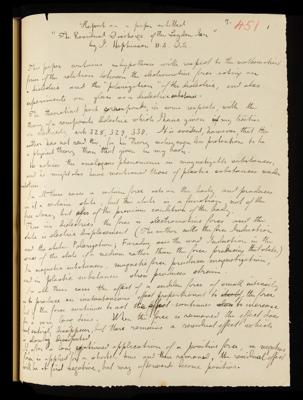 Report on a paper entitled
"The Residual Discharge of the Leyden Jar"
by J. Hopkinson D.Sc.
451
This paper contains hypotheses with respect to the mathematical
form of the relation between the electromotive force acting on
a dielectric and the "polarization" of the dielectric, and also
experiments on glass as a dielectric.
The theoretical part corresponds in some respects with the
theory of a composite dielectric which I have given in my treatise
on Electricity, arts 328, 329, 330. It is evident, however, that the
author has not read this, for his Theory
a physical theory than that given in my book.
He notices the analogous phenomena in magnetizable substances,
and he might also have mentioned those of plastic substances under
In all these cases a certain force acts on the body and produces
a certain state, but this state is a function, not of the
force alone, but also of the previous condition of the body.
Thus in dielectrics the force is electromotive force and the
state is electric displacement (The author calls the force Induction
and the state Polarization). Faraday uses the word Induction in the
sense of the state of a medium rather than the force producing that state.)
In magnetic substances, magnetic force produces magnetization,
and in plastic substances stress produces strain.
In all these cases the effect of a sudden force of small intensity
is to produce an instantaneous effect proportional to the force,
but if the force continues to act the effect continues to increase
for a very long time. When the force is removed the effect does
not entirely disappear, but there remains a residual effect which
is slowly dissipated.
If after the long continued application of a positive force, a negative
force is applied for a short time and then removed, the residual effect
will be at first negative, but may afterwards become positive.